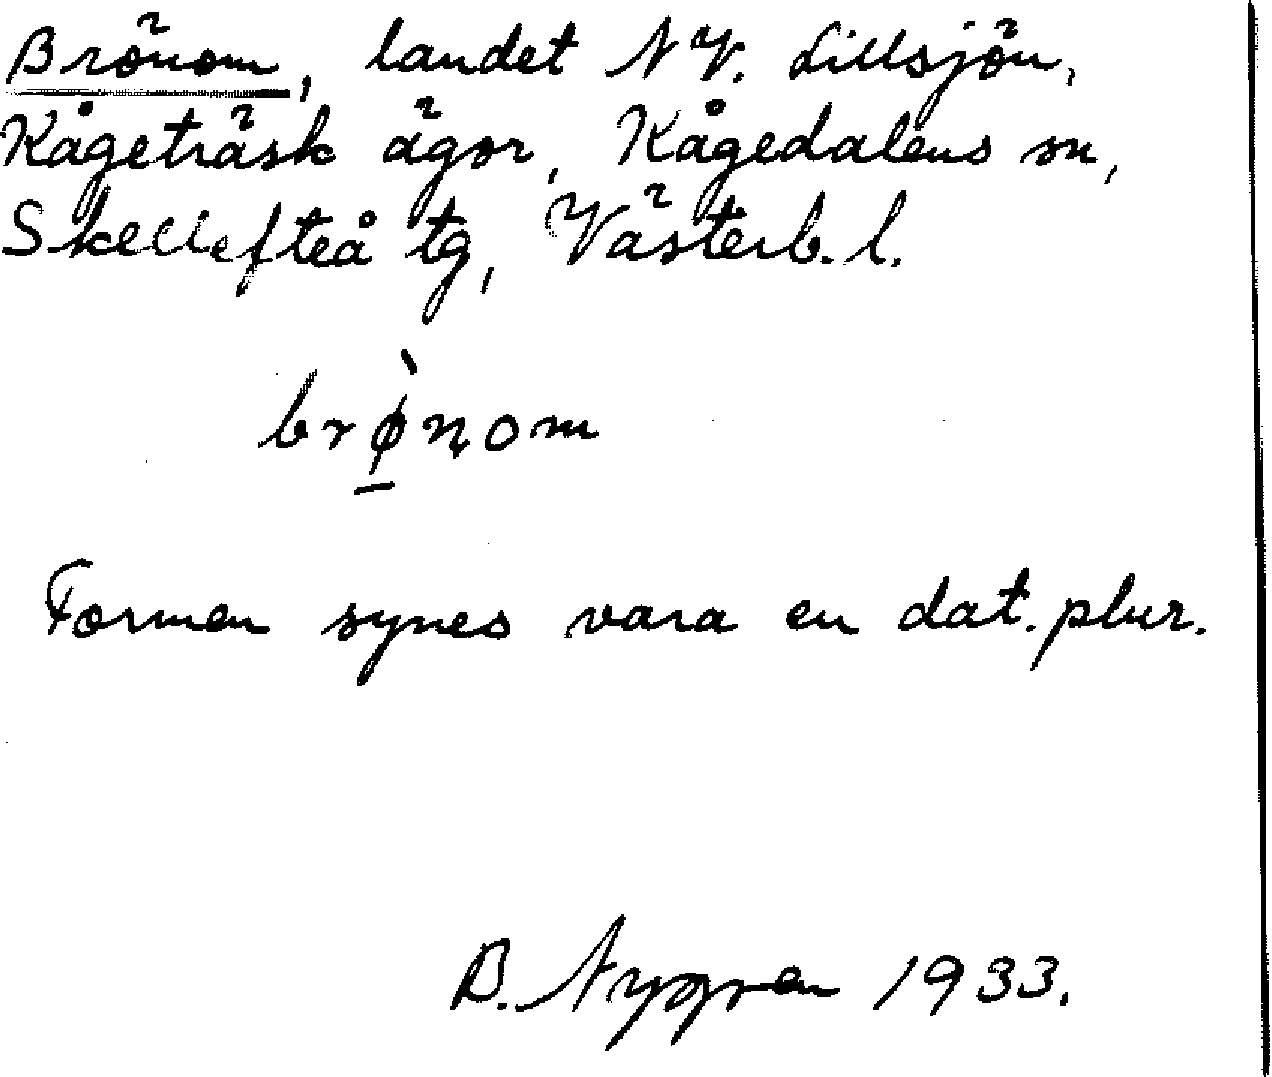 Brönom, landet N V. Lillsjön,
Kågeträsk ägor, Kågedalens sn,
Skellefteå tg, Västerb. l.
brø̱̀nom
Formen synes vara en dat. plur.
B. Nygren 1933.